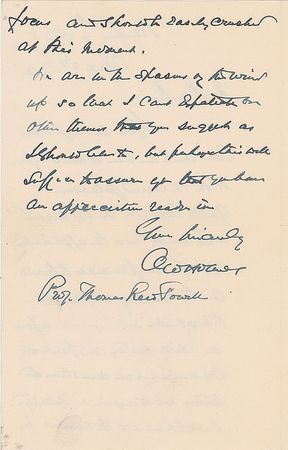 focus and should be easily crushed
at this moment.
We are in the spasms of the wind
up so that I can't expatiate on
other themes that you suggest as
I should like to, but perhaps this will
suffice to assure you that you have
an appreciative reader in
Yours sincerely
O W Holmes
Prof. Thomas Reed Powell